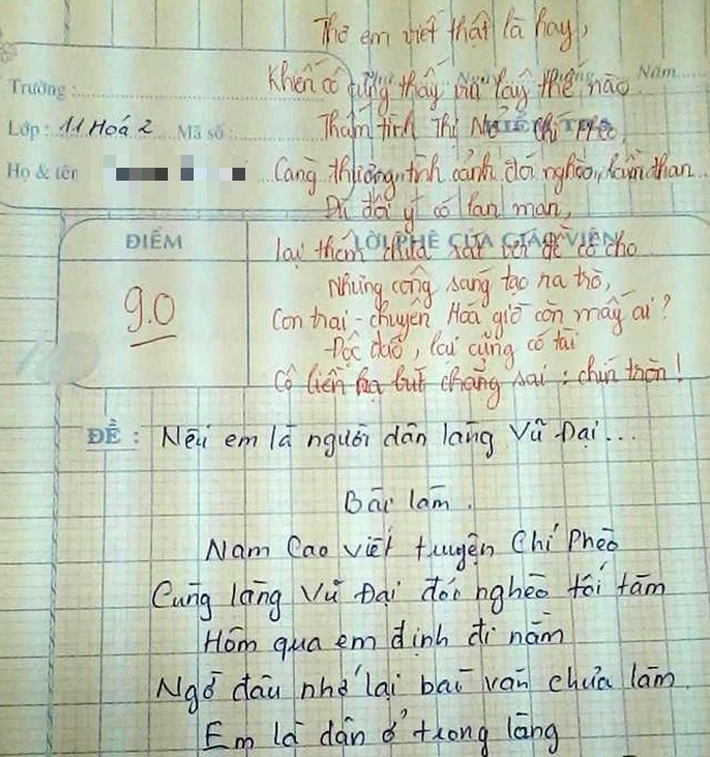 Thơ em viết thật là hay,
Khiến cô cũng thấy vui lây thế nào
Năm
Trường :
Lớp : 11 Hoá 2 Mã số :
Thấm tình Thị Nở Chí Phèo,
Họ & tên
Càng thương tình cảnh đói nghèo, lầm than
Dù đôi ý có lan man,
ĐIỂM
LỜI PHÊ CỦA GIÁO VIÊN
lại thêm chưa sát với đề cô cho
9.0
Nhưng công sáng tạo ra trò,
Con trai - chuyên Hoá giờ còn mấy ai?
Độc đáo, lại cũng có tài
Cô liền hạ bút chẳng sai : chín tròn!
ĐỀ : Nếu em là người dân làng Vũ Đại...
Bài làm.
Nam Cao viết truyện Chí Phèo
Cùng làng Vũ Đại đói nghèo tối tăm
Hôm qua em định đi nằm
Ngờ đâu nhớ lại bài văn chưa làm
Em là dân ở trong làng